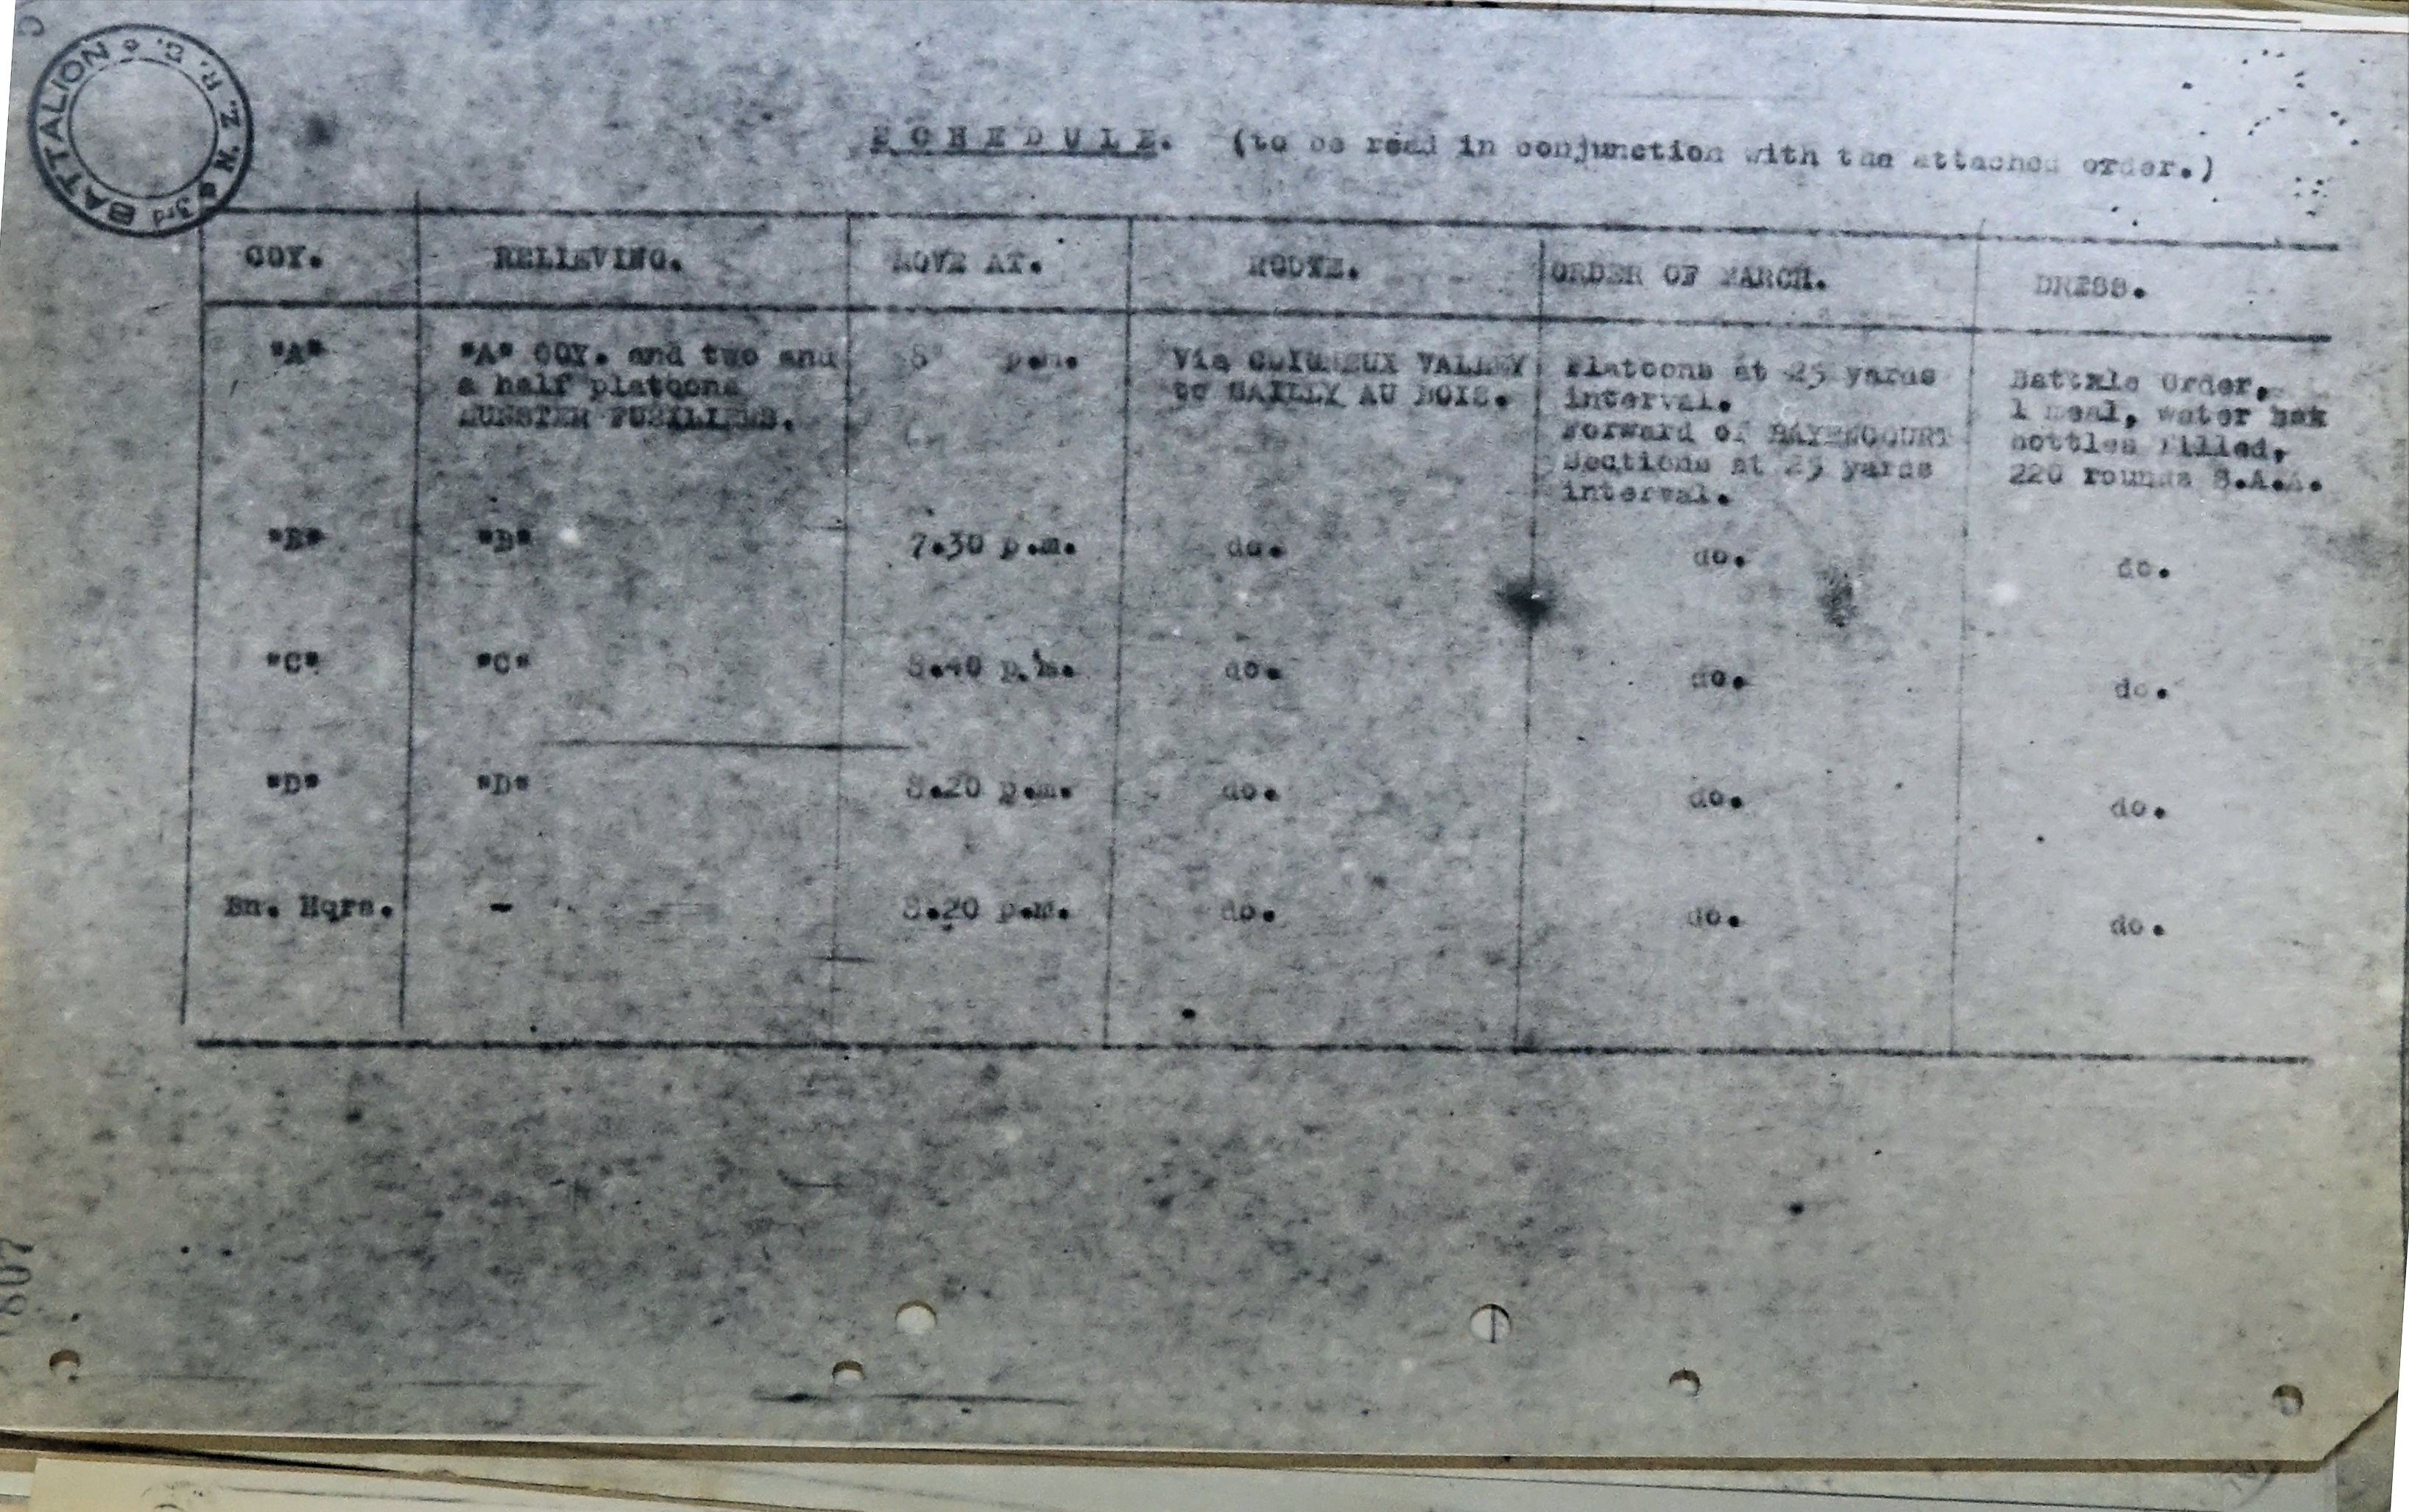 3rd BATTALION N. Z. R. B.
SCHEDULE. (to be read in conjunction with the attached order.)
COY. RELIEVING. MOVE AT. ROUTE. ORDER OF MARCH. DRESS.
"A" "A" COY. and two and 8 p.m. Via VALLEY Platoons at 25 yards Battxle Order,
a half platoons to SAILLY AU BOIS. interval. 1 meal, water
MUNSTER FUSILIERS. Forward of BAYENCOURT bottles filled,
Sections at 25 yards 220 rounds S.A.A.
interval.
"B" "B" 7.30 p.m. do. do. do.
"C" "C" 8.40 p.m. do. do. do.
"D" "D" 8.20 p.m. do. do. do.
Bn. Hqrs. - 8.20 p.m. do. do. do.
807